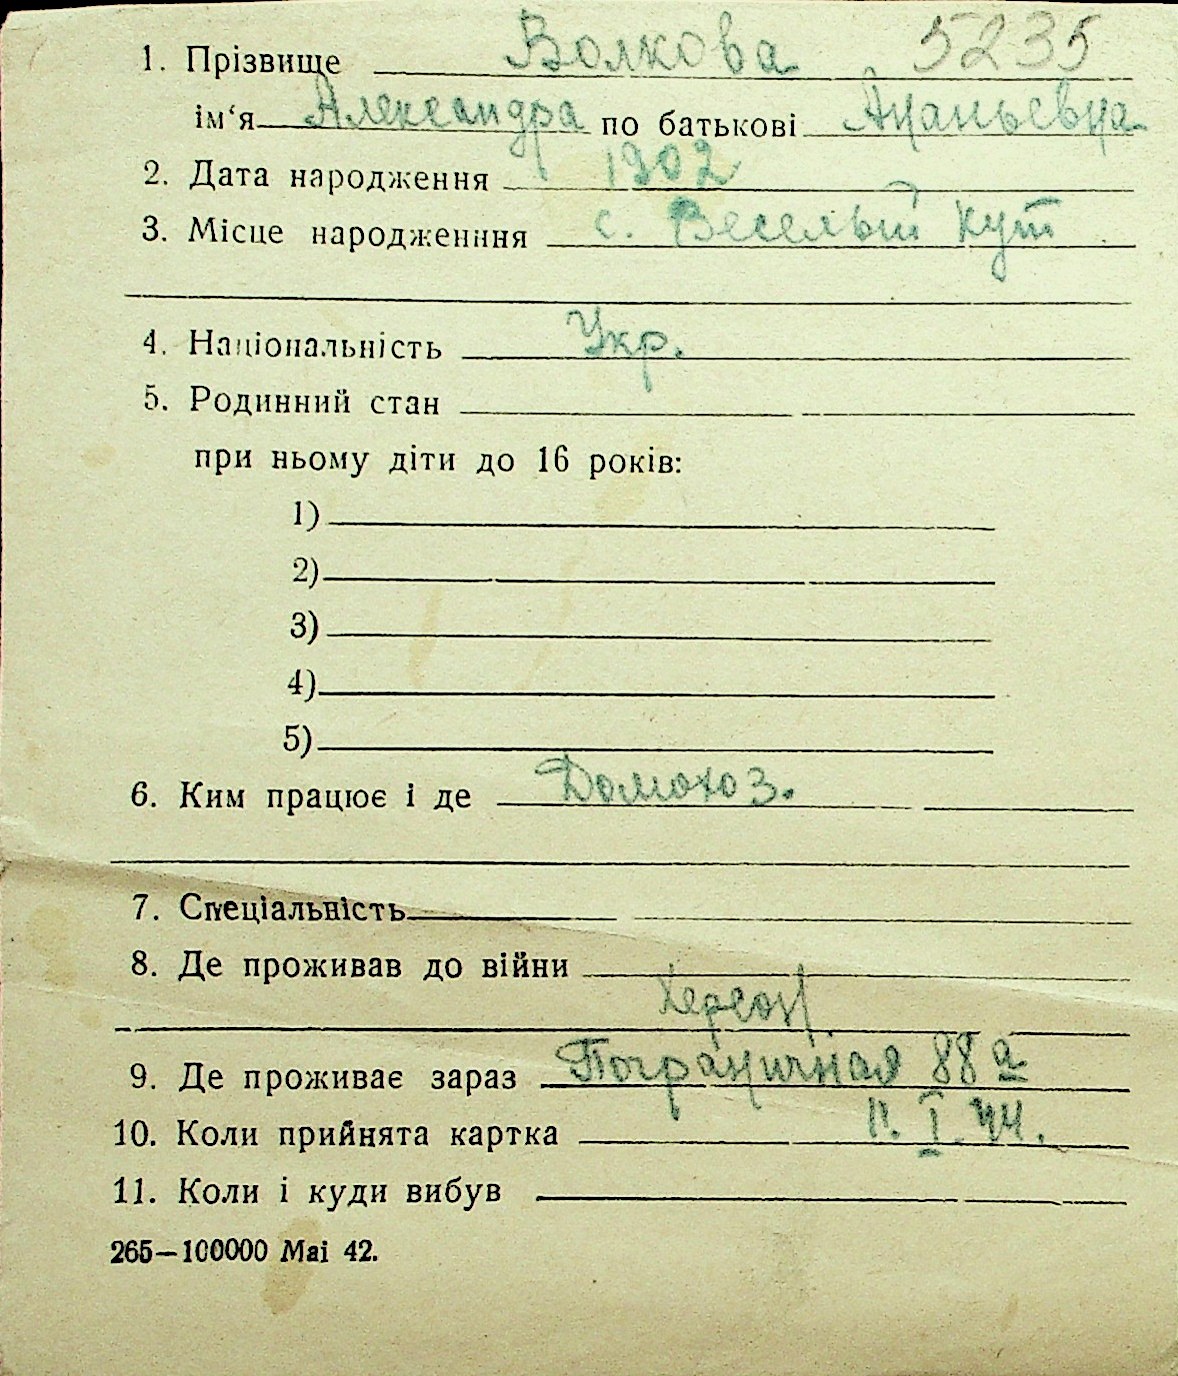 1. Прізвище Волкова 5235
ім‘я Александра по батькові Ананьевна
2. Дата народження 1902
3. Місце народженння с. Веселый Кут
4. Національність Укр.
5. Родинний стан
при ньому діти до 16 років:
1)
2)
3)
4)
5)
6. Ким працює і де Домохоз.
7. Спеціальність
8. Де проживав до війни
Херсон
9. Де проживає зараз Пограничная 88 а
10. Коли прийнята картка 11. I. 44.
11. Коли і куди вибув
265—100000 Mai 42.